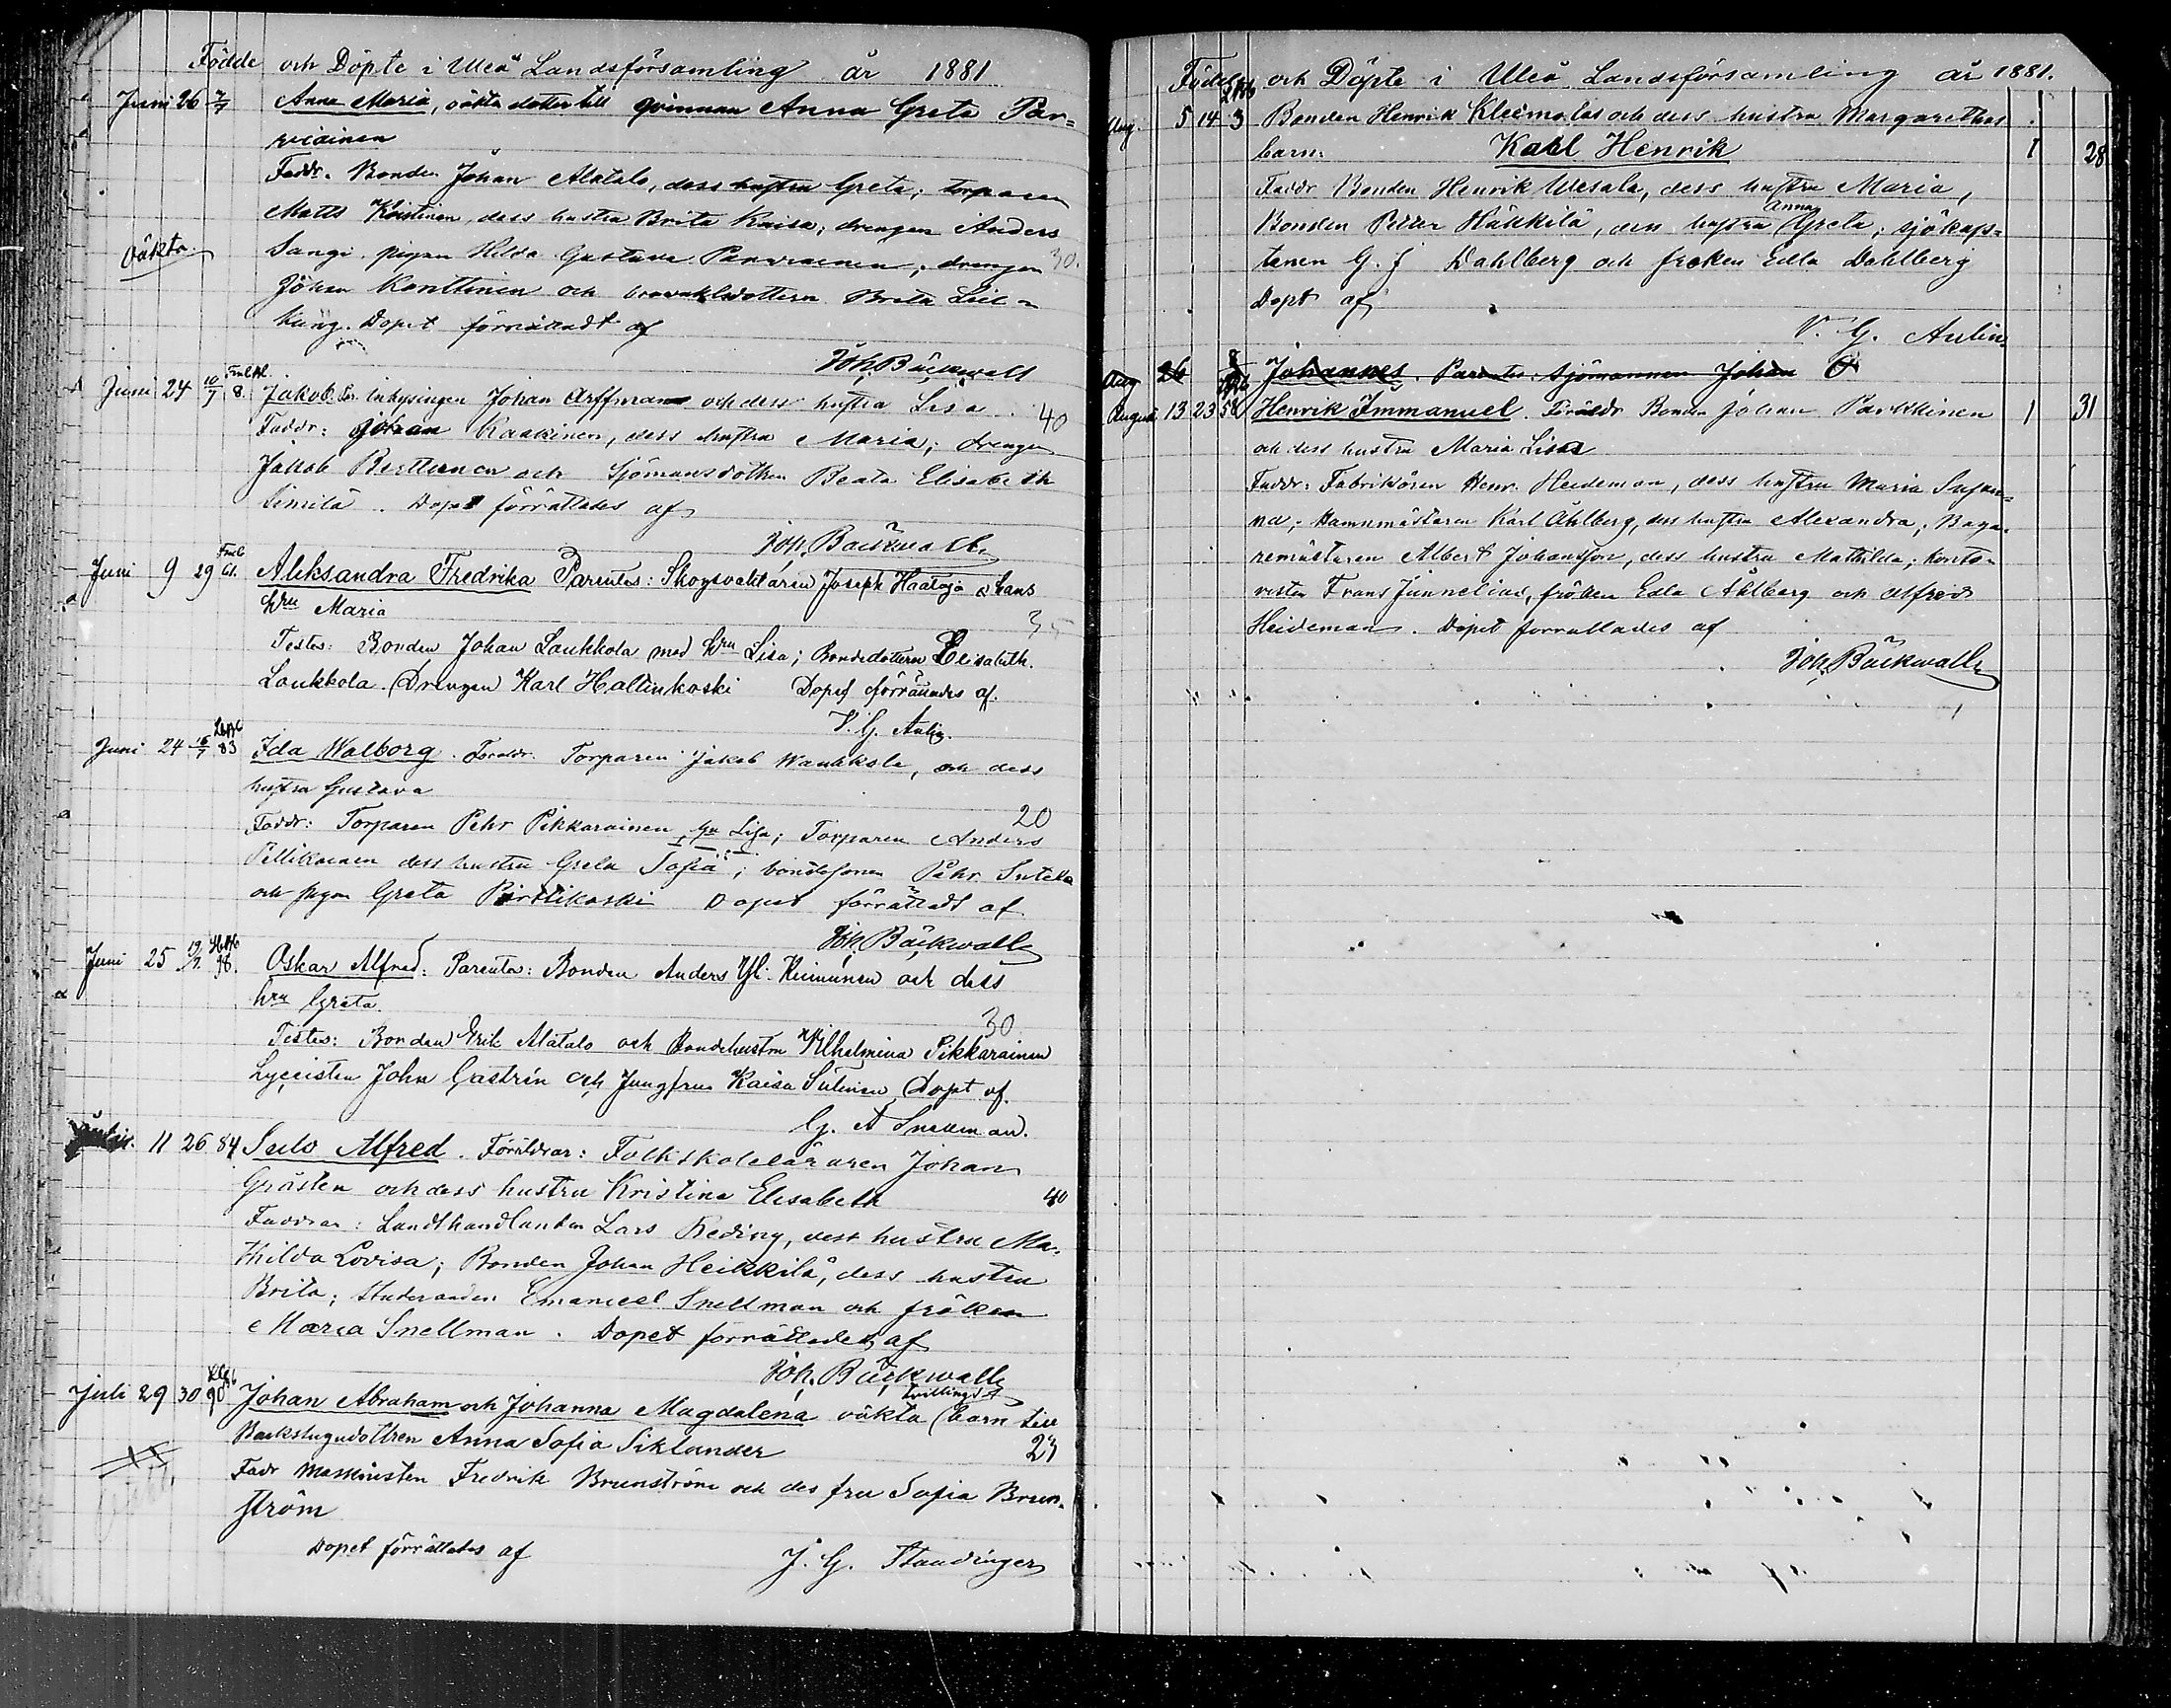 Födde och Döpte i Uleå Landsförsamling år 1881
Juni 26 Anna Maria, oäkta dotter till qvinnan Anna Greta Par=
viainen
Faddr. Bonden Johan Alatalo, dess hustru Greta; torparen
Matts Koistinen, dess hustru Brita Kaisa; drengen Anders
oäkta. Sangi, pigan Hilda Gustava Parviainen; drengen 30.
Johan Konttinen och Brita
Dopet förrättadt af
Joh. Bäckwall
Juni 24 10/7 8. Jakob. Inhysingen Johan Arffman och dess hustru Lisa. 40
Faddr: Johan Kaakinen, dess hustru Maria; drengen
Jakob och Sjömansdottern Beata Elisabeth
Similä. Dopet förrättades af
Joh. Bäckwall.
Juni 9 29 61. Aleksandra Fredrika Parentes: Skogsvaktaren Joseph Haataja & hans
hru Maria 35
Testes: Bonden Johan Laukkola med hru Lisa; Bondedottern Elisabeth
Laukkola, Drengen Karl Haltinkoski Dopet förrättades af.
V. G. Aulin.
Juni 24 16/7 83 Ida Walborg. Föräldr. Torparen Jakob Wauhkola, och dess
hustru Gustava
Faddr: Torparen Pehr Pikkarainen, hu Lisa; Torparen Anders 20
Pellikainen dess hustru Greta Sofia; bondesonen Pehr Sutela
och pigan Greta Pirttikoski Dopet förrättadt af
Joh. Bäckwall
Juni 25 19/7. 98. Oskar Alfred: Parentes: Bonden Anders Yli-Keimänen och dess
hru Greta.
30
Testes: Bonden Erik Alatalo och Bondehustru Wilhelmina Pikkarainen
Lyceisten John Castrén och Jungfrun Kaisa Dopt af.
G. A Snellman.
11 26 84 Sulo Alfred. Föräldrar: Folkskoleläraren Johan
Gråsten och dess hustru Kristina Elisabeth 40
Faddrar: Landthandlanden Lars Keding, dess hustru Ma=
thilda Lovisa; Bonden Johan Heikkilä, dess hustru
Brita; Studeranden Emanuel Snellman och fröken
Maria Snellman. Dopet förrättades af
Joh. Bäckwall
Juli 29 30 90 Johan Abraham och Johanna Magdalena oäkta (tvillings) barn till
Backstugudottren Anna Sofia Siklander 23
Fadr Maskinisten Fredrik Brunström och des fru Sofia Brun=
ström
Dopet förrättades af J. G. Standinger
Födde och Döpte i Uleå Landsförsamling år 1881.
Aug. 5 14 3 Bonden Henrik Kleemolas och dess hustru Margarethas
barn: Karl Henrik 1 28
Faddr Bonden Henrik Wesala, dess hustru Maria,
Bonden Petter Häkkilä, dess hustru Anna Greta; sjökap=
tenen G. J Dahlberg och fröken Edla Dahlberg
Dopt af
V. G. Aulin.
Aug 26 Johannes. Parentes: Sjömannen Johan
August 13 23 52 Henrik Immanuel. Föräldr Bonden Johan Parkkinen 1 31
och dess hustru Maria Lisa
Faddr: Fabrikören Henr. Heideman, dess hustru Maria Susan=
na; Hamnmästaren Karl Åhlberg, dess hustru Alexandra; Baga=
remästaren Albert Johansson, dess hustru Mathilda; Konto=
risten Frans Junnelius, fröken Edla Åhlberg och Alfred
Heideman. Dopet förrättades af
Joh. Bäckwall